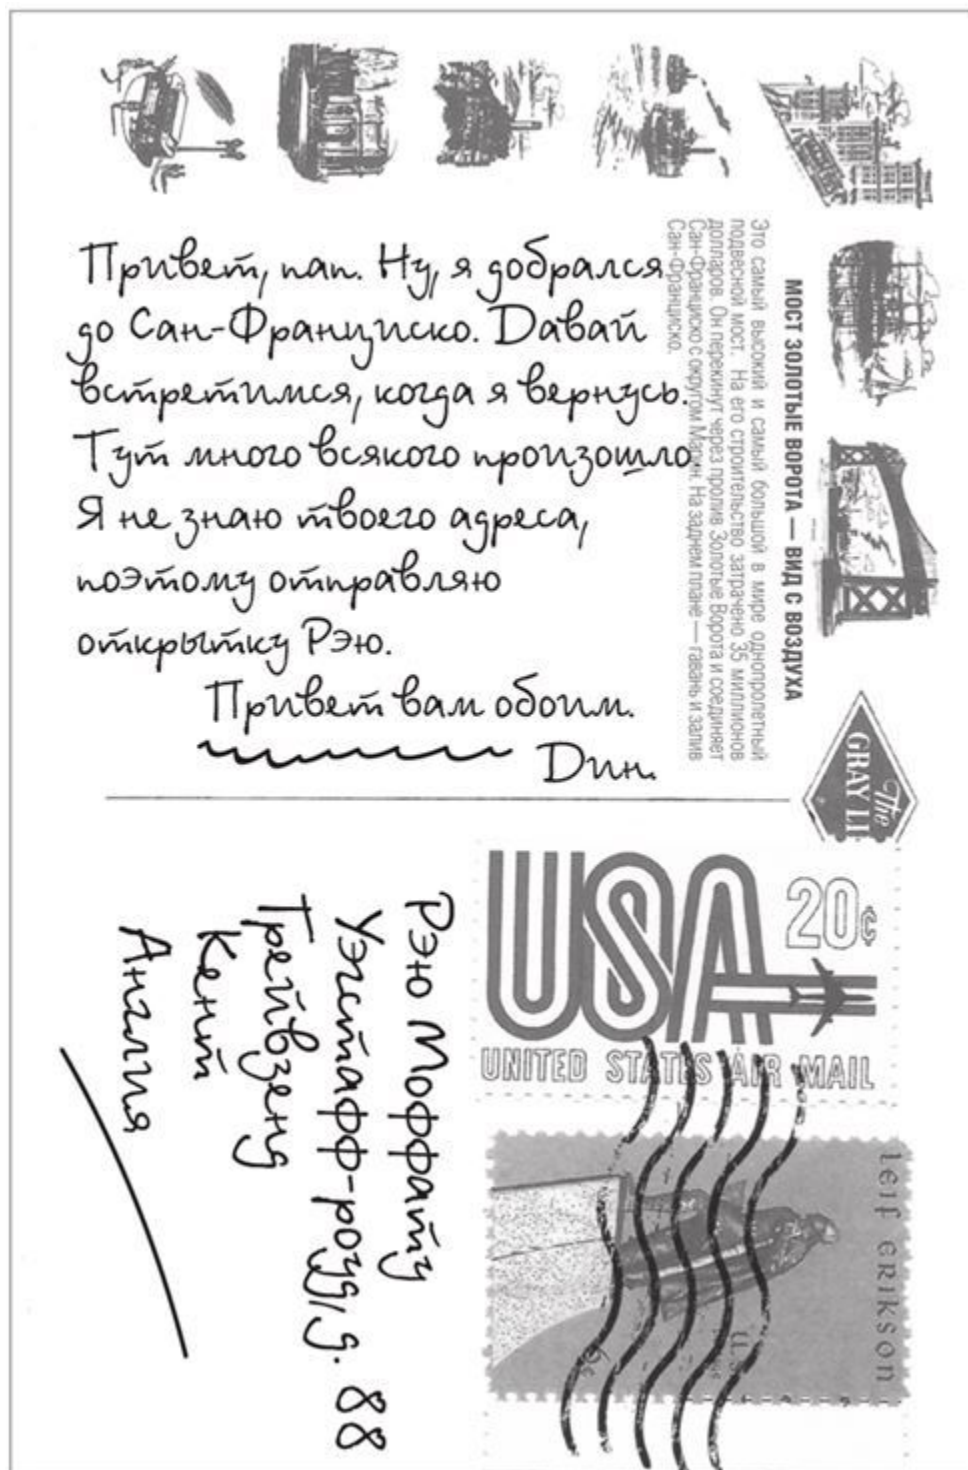 Привет, пап. Ну, я добрался
до Сан-Франциско. Давай
встретимся, когда я вернусь.
Тут много всякого произошло
Я не знаю твоего адреса,
поэтому отправляю
открытку Рэю.
Привет вам обоим.
Дин.
МОСТ ЗОЛОТЫЕ ВОРОТА — ВИД С ВОЗДУХА
Это самый высокий и самый большой в мире однопролетный
подвесной мост. На его строительство затрачено 35 миллионов
долларов. Он перекинут через пролив Золотые Ворота и соединяет
Сан-Франциско с округом Марин. На заднем плане — гавань и залив
Сан-Франциско.
The
GRAY LI
USA 20c
UNITED STATES AIR MAIL
Рэю Моффату
Уэгстафф-роуд, д. 88
Грейвзенд
Кент
Англия
LEIF ERIKSON
6c